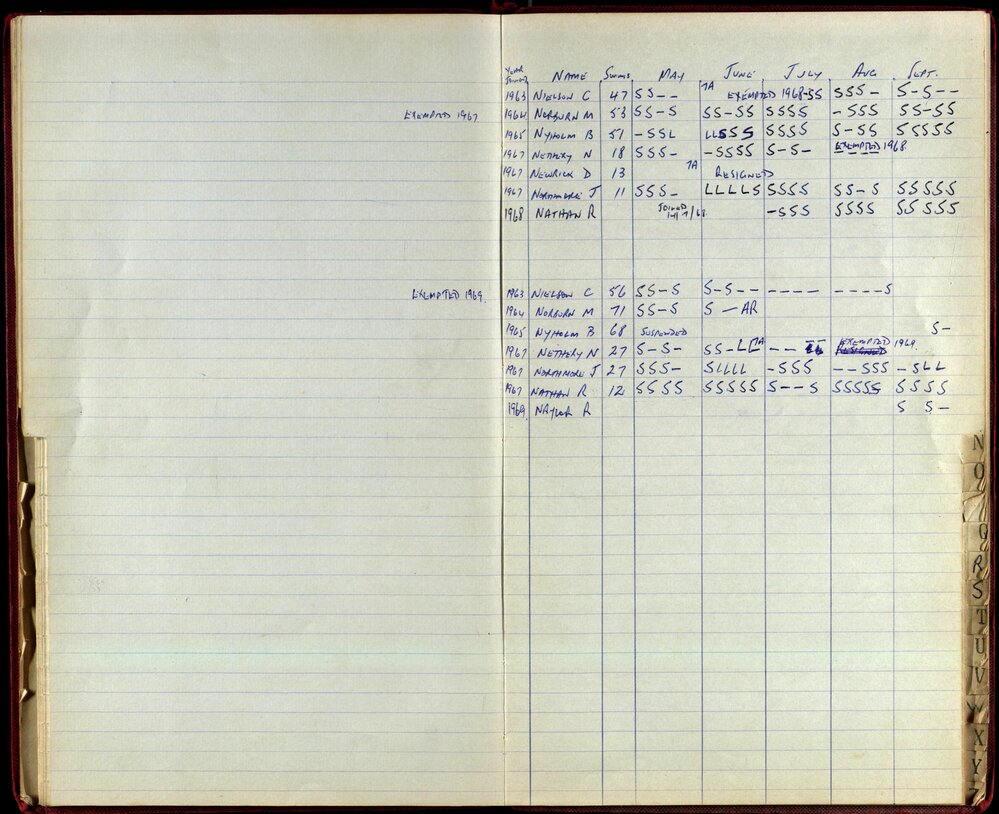 YEAR JOINED NAME SWIMS MAY JUNE JULY AUG SEPT.
1963 NIELSON C 47 SS-- 7A EXEMPTED 1968-SS SSS- S-S--
EXEMPTED 1967 1964 NORBURN M 53 SS-S SS-SS SSSS -SSS SS-SS
1965 NYHOLM B 51 -SSL LLSSS SSSS S-SS SSSSS
1967 NETHERY N 18 SSS- -SSSS S-S- EXEMPTED 1968
1967 NEWRICK D 13 7A RESIGNED
1967 NORTHMORE J 11 SSS- LLLLS SSSS SS-S SSSSS
1968 NATHAN R JOINED -SSS SSSS SSSSS
EXEMPTED 1969. 1963 NIELSON C 56 SS-S S-S-- ---- ----S
1964 NORBURN M 71 SS-S S - AR
1965 NYHOLM B 68 SUSPENDED S-
1967 NETHERY N 27 S-S- SS-LL 7A -- EXEMPTED 1969.
1967 NORTHMORE J 27 SSS- SLLLL -SSS --SSS -SLL
1967 NATHAN R 12 SSSS SSSSS S--S SSSSS SSSS
1969 NAYLOR R S S-
N
O
Q
R
S
T
U
V
W
X
Y
Z